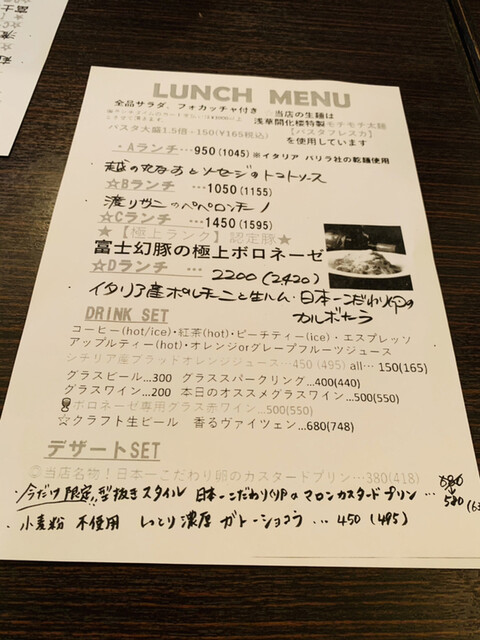 LUNCH MENU
全品サラダ、フォカッチャ付き
☆当店の生麺は
浅草開化楼特製モチモチ太麺
パスタ大盛1.5倍…150(¥165税込)
【パスタフレスカ】
を使用しています
・Aランチ…950(1045) ※イタリア バリラ社の乾麺使用
越の丸なすとソセージのトマトソース
☆Bランチ …1050(1155)
渡りガニのペペロンチーノ
☆Cランチ …1450(1595)
★【極上ランク】認定豚★
富士幻豚の極上ボロネーゼ
☆Dランチ … 2200(2420)
イタリア産ポルチーニと生ハム・日本一こだわり卵の
カルボナーラ
DRINK SET
コーヒー(hot/ice)・紅茶(hot)・ピーチティー(ice)・エスプレッソ
アップルティー(hot)・オレンジorグレープフルーツジュース
シチリア産ブラッドオレンジジュース…450 (495) all… 150(165)
グラスビール…300 グラススパークリング…400(440)
グラスワイン…200 本日のオススメグラスワイン…500(550)
ボロネーゼ専用グラス赤ワイン…500(550)
☆クラフト生ビール 香るヴァイツェン…680(748)
デザートSET
◎当店名物！日本一こだわり卵のカスタードプリン…380(418)
・今だけ限定!!型抜きスタイル 日本一こだわり卵のマロンカスタードプリン … 680
580
・小麦粉 不使用 しっとり濃厚 ガトーショコラ … 450 (495)